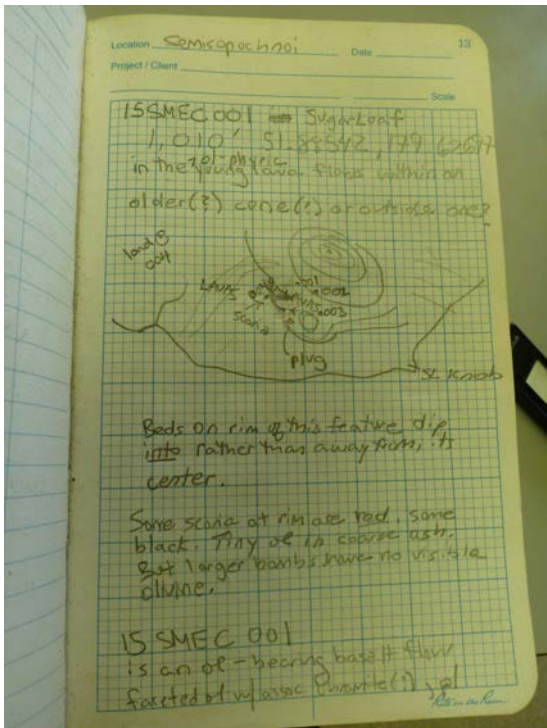 Location Semisopochnoi Date 13
Project / Client
Scale
15SMEC001 Sugarloaf
1,010' 51.88542, 179.62677
ol-phyric
in the young lava flows within an
older(?) cone(?) or outside one?
land @
004
001
002
Lavas
003
scoria
plug
SL Knob
Beds on rim of this feature dip
into rather than away from, its
center.
Some scoria at rim are red, some
black. Tiny ol in coarse ash.
But larger bombs have no visible
olivine.
15 SMEC 001
is an ol-bearing basalt flow
faceted ol w/ assoc chromite(?), pl
Rite in the Rain